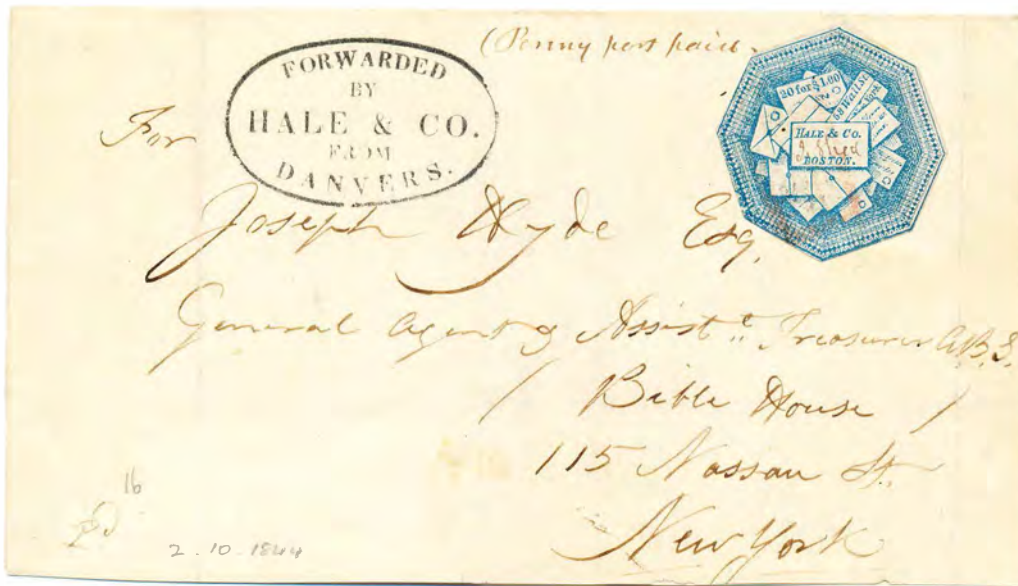 (Penny post paid.
FORWARDED
BY
HALE & CO.
FROM
DANVERS.
20 for $1.00
HALE & CO.
BOSTON.
For
Joseph Hyde Esq.
General Agent & Assist.t Treasurer A.B.S.
Bible House
115 Nassau St.
New York
16
2.10.1844